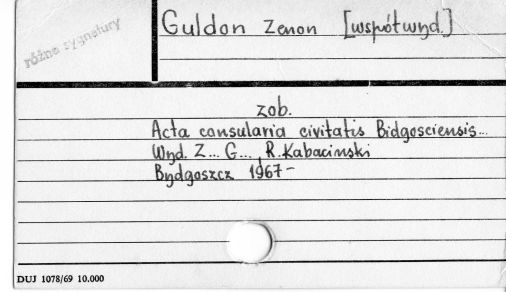 różne sygnatury
Guldon Zenon [współwyd.]
zob.
Acta consularia civitatis Bidgosciensis...
Wyd. Z... G..., R. Kabaciński
Bydgoszcz 1967-
DUJ 1078/69 10.000